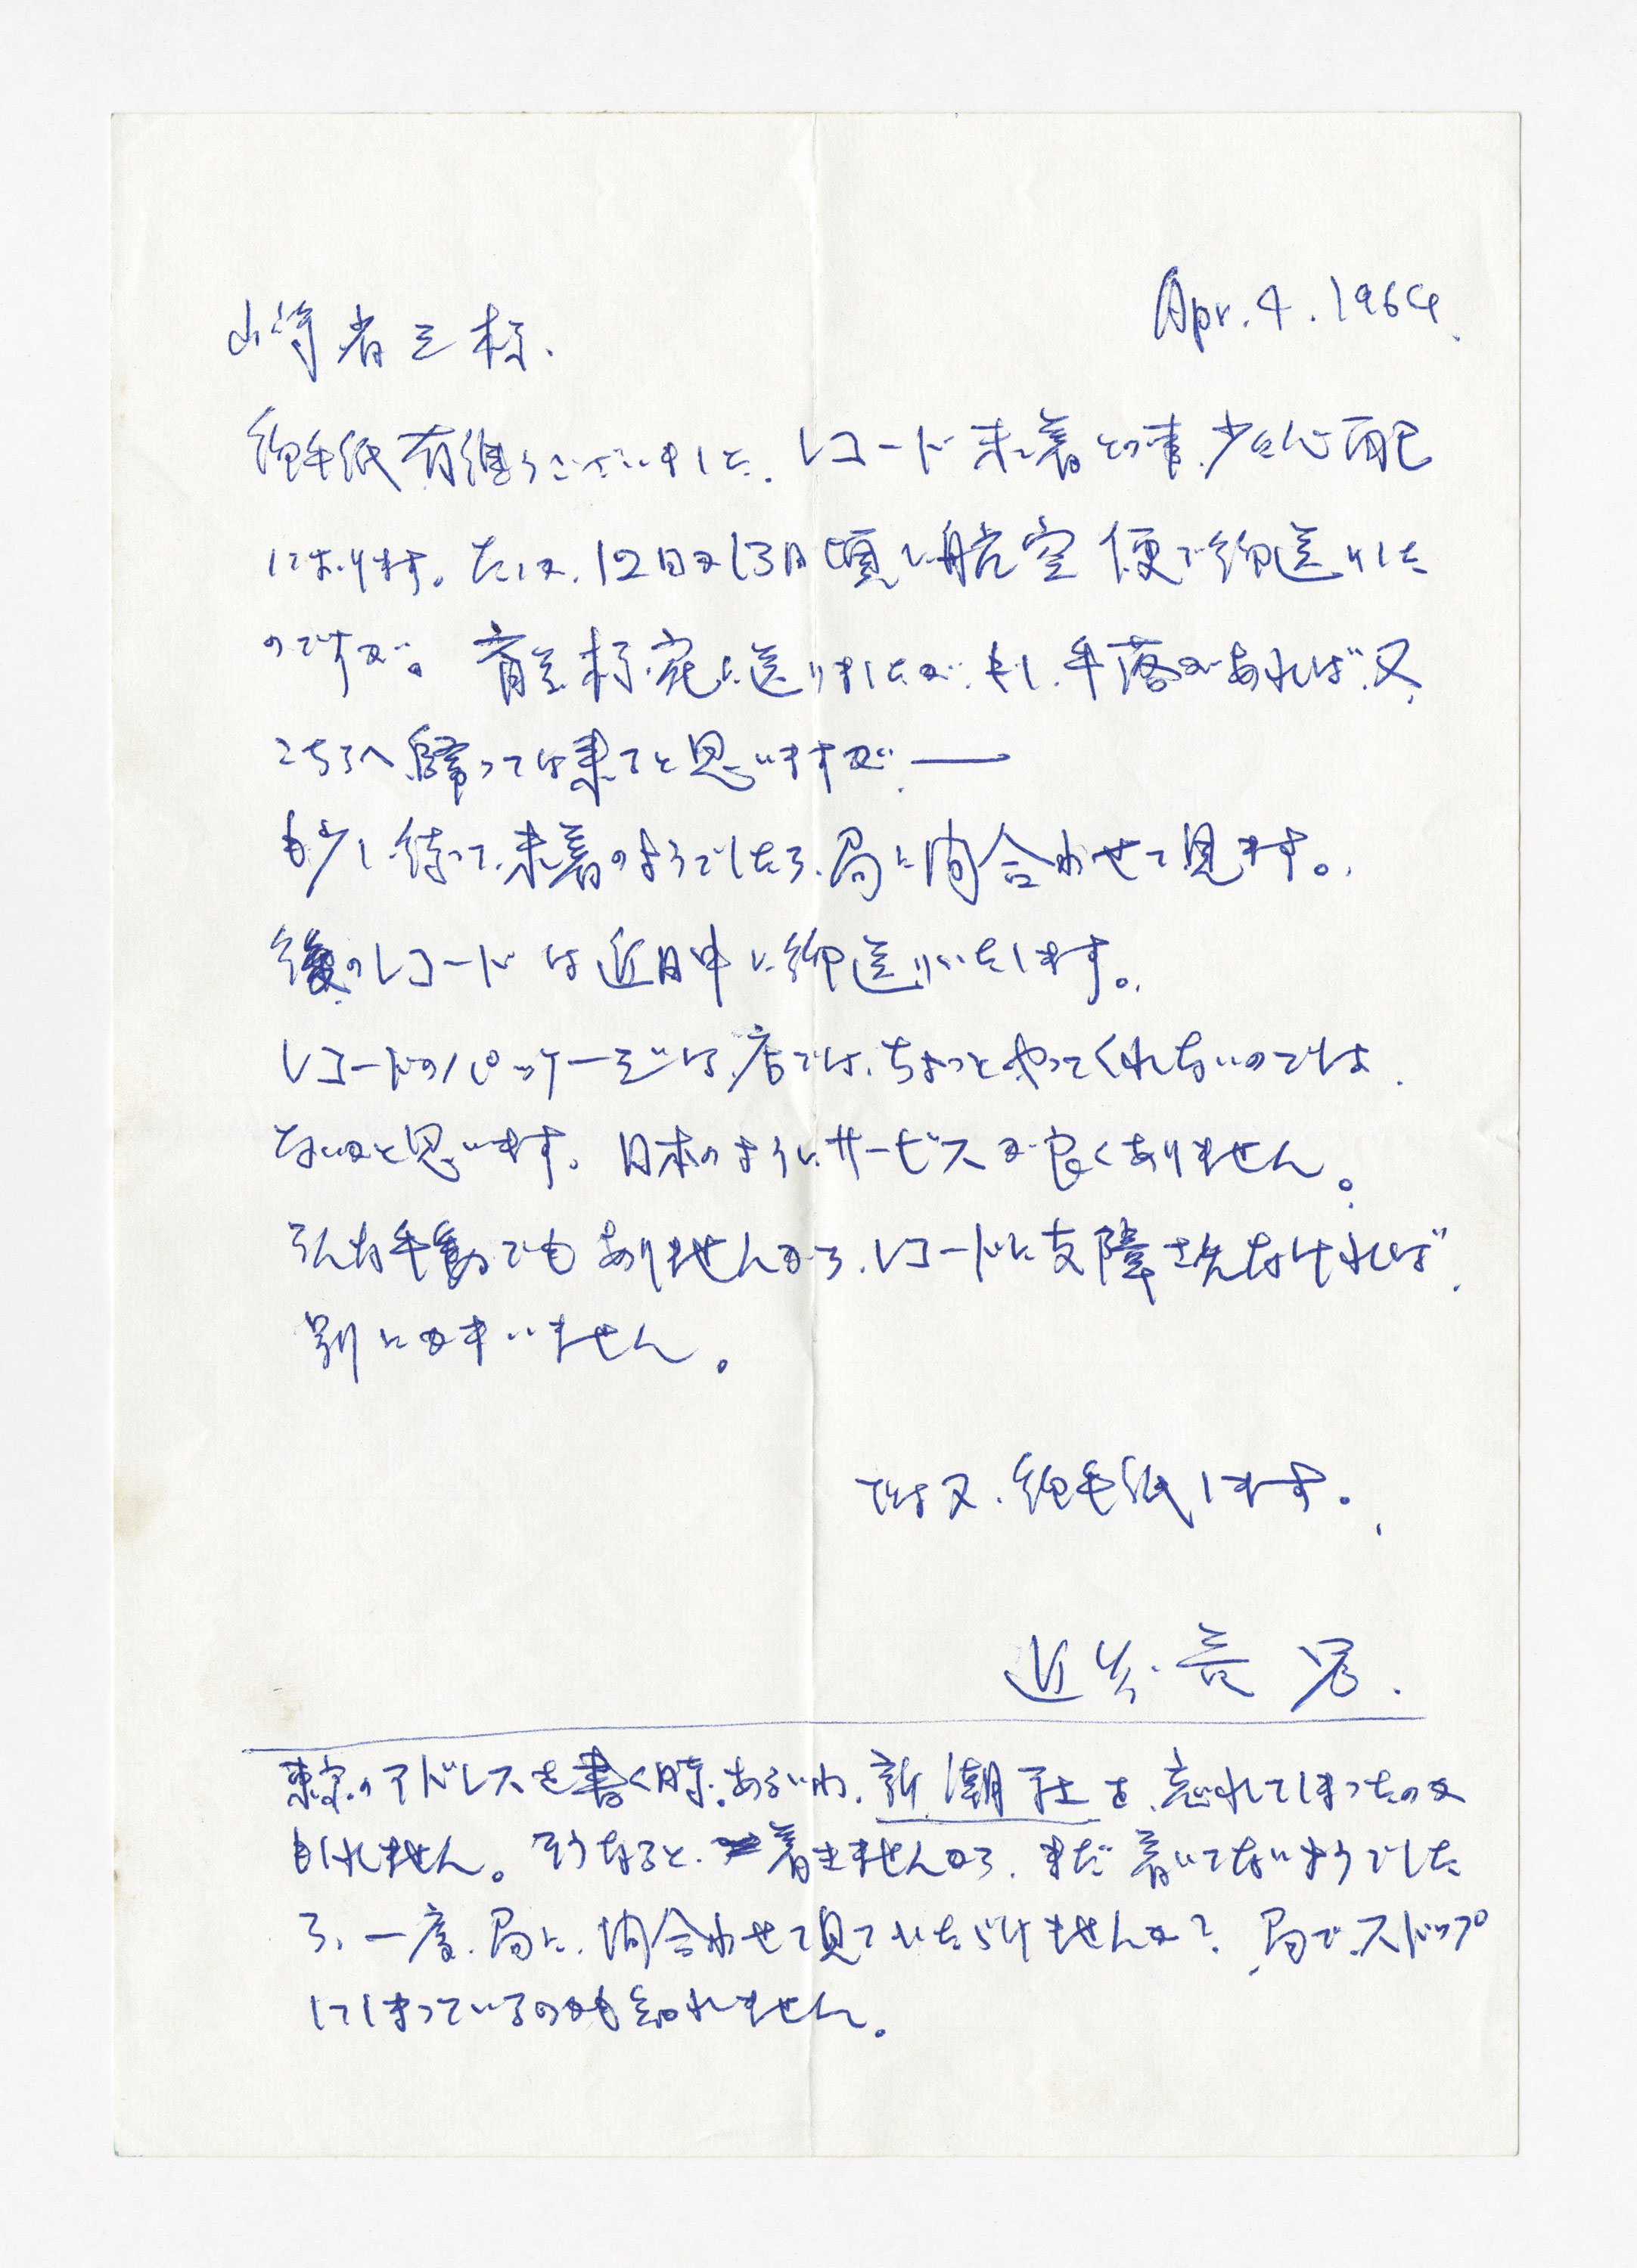 Apr. 4. 1964.
山崎省三様、
御手紙有難うございました。レコード未着との事、少々心配
しております。たしか、12日か13日頃に航空便で御送りした
のですが。斎 様宅に送りましたが、もし、手落があれば、又、
こちらへ帰っては来ると思いますが、―
も少し待って、未着のようでしたら、局に問合わせて見ます。
後のレコードは近日中に御送りいたします。
レコードのパッケージは、店では、ちょっとやってくれないのでは、
ないかと思います。日本のようにサービスが良くありません。
そんな手数でもありませんから、レコードに支障さえなければ、
別にかまいません。
では又、御手紙します。
近 長
東京のアドレスを書く時、あるいわ、新潮社を、忘れてしまったのか
もしれません。そうなると、着きませんから、まだ着いてないようでした
ら、一度、局に、問合わせて見ていただけませんか？局で、ストップ
してしまっているのかも知れません。